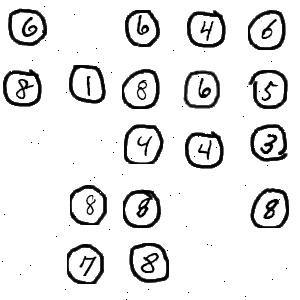 6 6 4 6
8 1 8 6 5
4 4 3
8 8 8
7 8